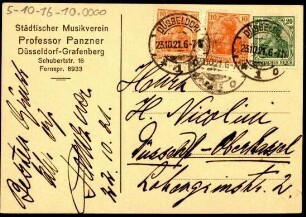 5-10-16-10.0000
Städtischer Musikverein
Professor Panzner
Düsseldorf-Grafenberg
Schubertstr. 16
Fernspr. 8933
DÜSSELDORF
23.10.21. 6-7
10
10
20
Herrn
H. Nicolini
Düsseldorf-Oberkassel
Lohengrinstr. 2.
Besten Gruß
22. 10. 21.